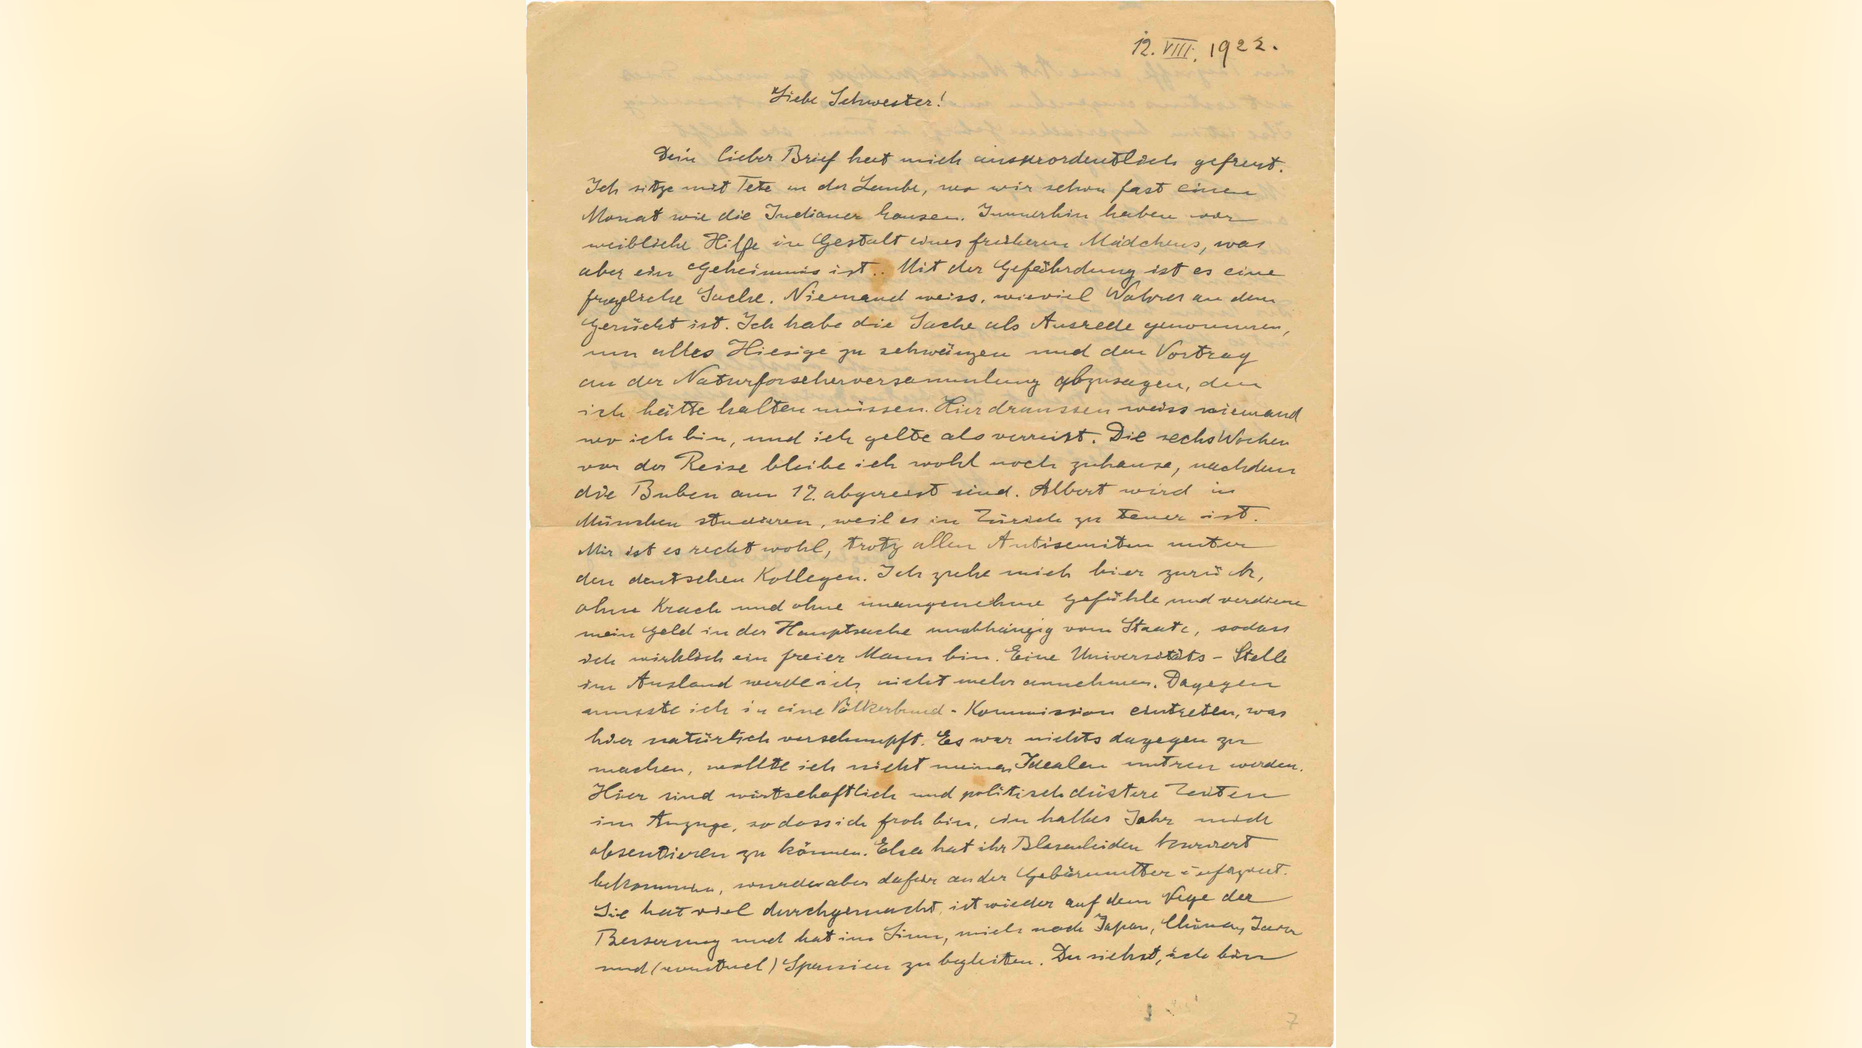 12. VIII. 1922.
Liebe Schwester!
Dein lieber Brief hat mich ausserordentlich gefreut.
Ich sitze mit Tete in der Laube, wo wir schon fast einen
Monat wie die Indianer hausen. Immerhin haben wir
weibliche Hilfe in Gestalt eines früheren Mädchens, was
aber ein Geheimnis ist.. Mit der Gefährdung ist es eine
fragliche Sache. Niemand weiss, wieviel Wahres an dem
Gerücht ist. Ich habe die Sache als Ausrede genommen,
um alles Hiesige zu schwänzen und den Vortrag
an der Naturforscherversammlung abzusagen, den
ich hätte halten müssen. Hier draussen weiss niemand
wo ich bin, und ich gelte als verreist. Die sechs Wochen
vor der Reise bleibe ich wohl noch zuhause, nachdem
die Buben am 17. abgereist sind. Albert wird in
München studieren, weil es in Zürich zu teuer ist.
Mir ist es recht wohl, trotz allen Antisemiten unter
den deutschen Kollegen. Ich ziehe mich hier zurück,
ohne Krach und ohne unangenehme Gefühle und verdiene
mein Geld in der Hauptsache unabhängig vom Staate, sodass
ich wirklich ein freier Mann bin. Eine Universitäts-Stelle
im Ausland werde ich nicht mehr annehmen. Dagegen
musste ich in eine Völkerbund-Kommission eintreten, was
hier natürlich verschnupft. Es war nichts dagegen zu
machen, wollte ich nicht meinen Idealen untreu werden.
Hier sind wirtschaftlich und politisch düstere Zeiten
im Anzuge, sodass ich froh bin, ein halbes Jahr mich
absentieren zu können. Elsa hat ihr Blasenleiden kuriert
bekommen, wurde aber dafür an der Gebärmutter infiziert.
Sie hat viel durchgemacht, ist wieder auf dem Wege der
Besserung und hat im Sinn, mich nach Japan, China, Java
und (eventuel) Spanien zu begleiten. Du siehst, ich bin
7